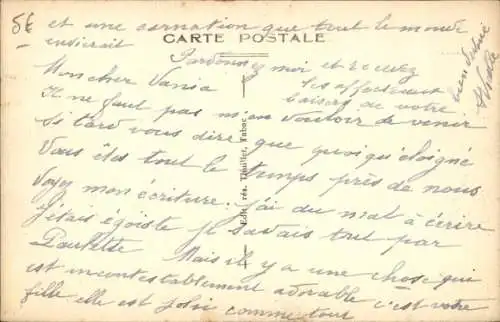 5€
et une carnation que tout le monde
envierait
CARTE POSTALE
Pardonnez moi et recevez
les affectueux
baisers de votre
bien désolé
Mon cher Vania
Il ne faut pas m'en vouloir de venir
si tard vous dire que quoiqu'éloigné
vous êtes tout le temps près de nous
Voyez mon écriture. J'ai du mal à écrire
J'étais égoïste je savais tout par
Paulette Mais il y a une chose qui
est incontestablement adorable c'est votre
fille elle est jolie comme tout
Edit. rés. Thuillier, Tabac